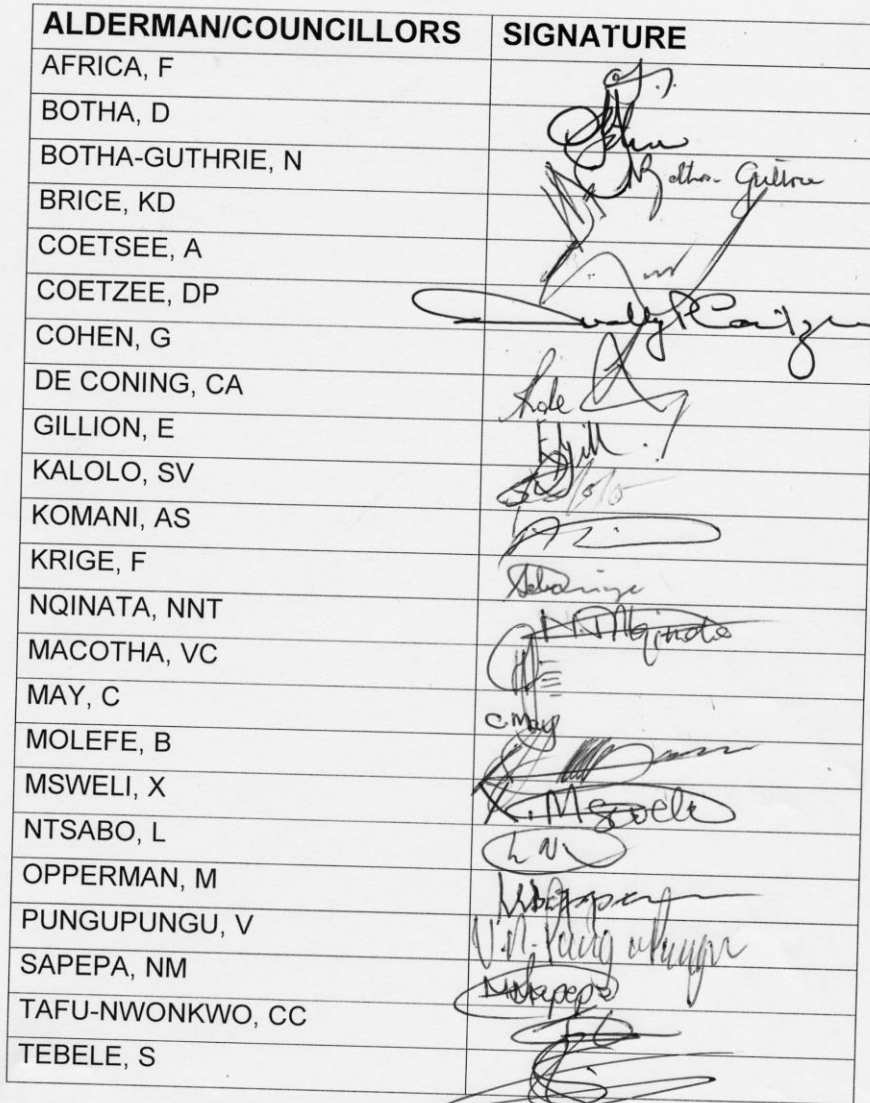 ALDERMAN/COUNCILLORS SIGNATURE
AFRICA, F
BOTHA, D Botha
BOTHA-GUTHRIE, N NBotha-Guthrie
BRICE, KD
COETSEE, A
COETZEE, DP
COHEN, G
DE CONING, CA
GILLION, E EGill
KALOLO, SV
KOMANI, AS
KRIGE, F
NQINATA, NNT
MACOTHA, VC
MAY, C C May
MOLEFE, B
MSWELI, X X. Msweli
NTSABO, L L N
OPPERMAN, M
PUNGUPUNGU, V V.N. Pungupungu
SAPEPA, NM NMSapepa
TAFU-NWONKWO, CC
TEBELE, S